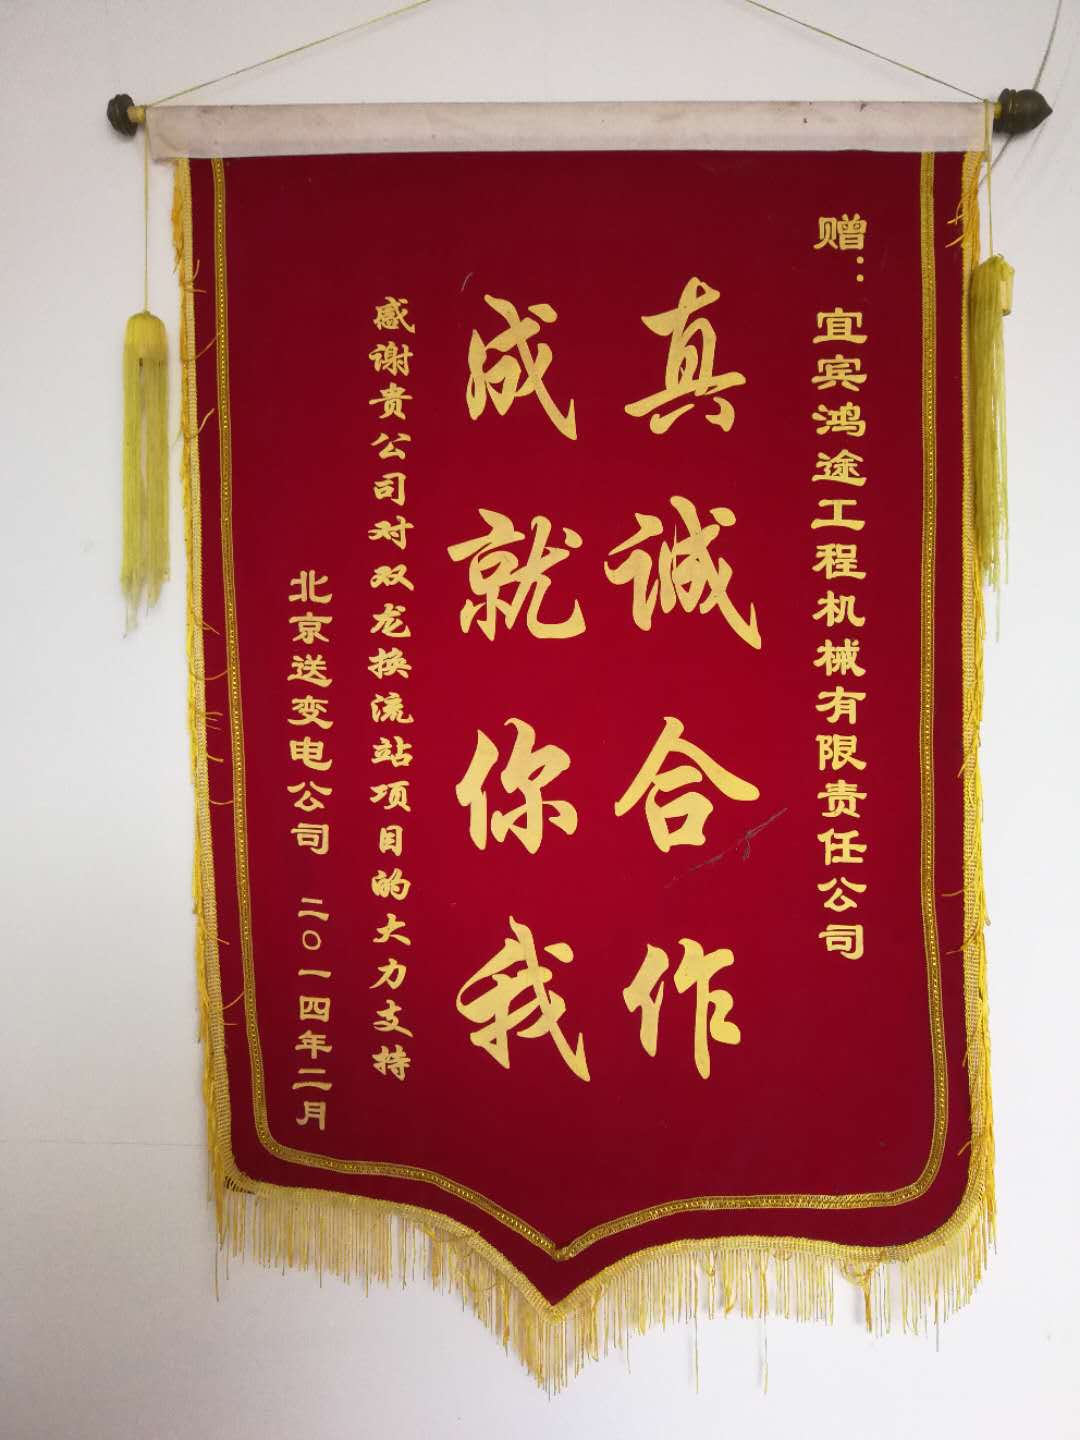 赠：宜宾鸿途工程机械有限责任公司
真诚合作
成就你我
感谢贵公司对双龙换流站项目的大力支持
北京送变电公司 二〇一四年二月